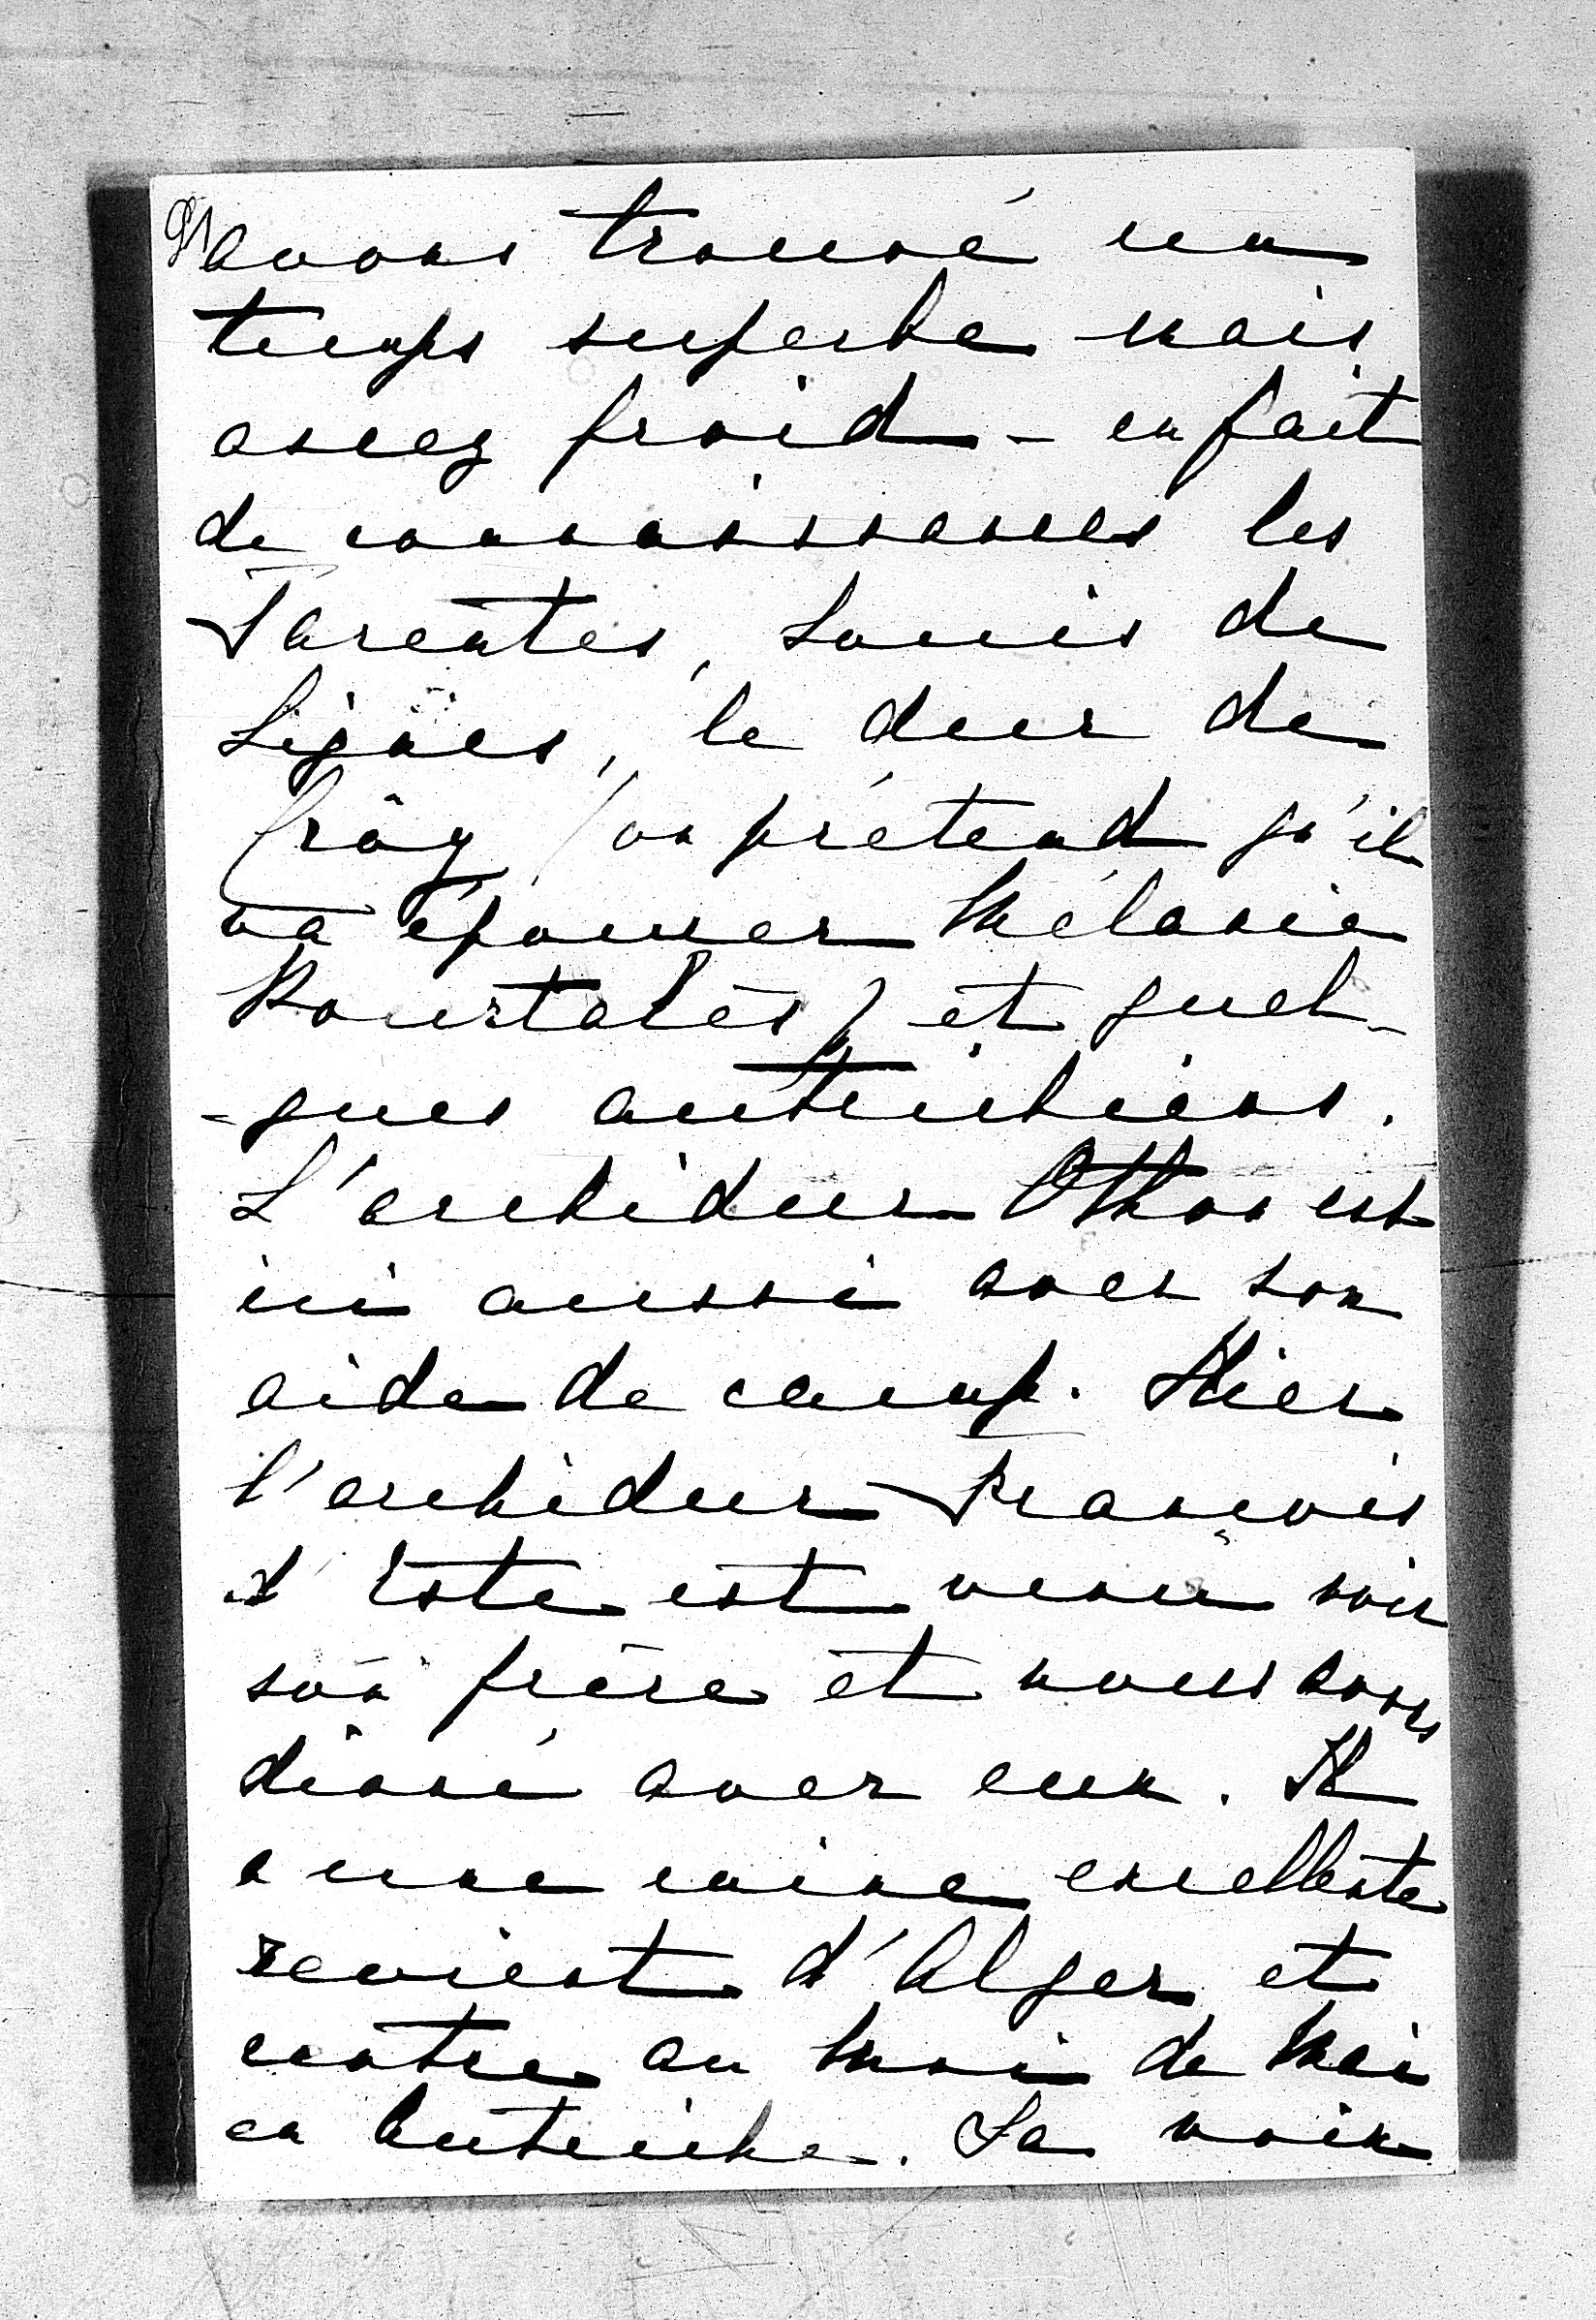 avons trouvé un
temps superbe mais
assez froid - en fait
de connaissances les
Tarentes, Louis de
Lignes, le duc de
Croÿ (on prétend qu'il
va épouser Mélanie
Pourtalès) et quel-
-ques autrichiens.
L'archiduc Othon est
ici aussi avec son
aide de camp. Hier
l'archiduc François
d'Este est venu voir
son frère et nous avons
diné avec eux. Il
a une mine excellente
revient d'Alger et
rentre au moi de Mai
en Autriche. Sa voix